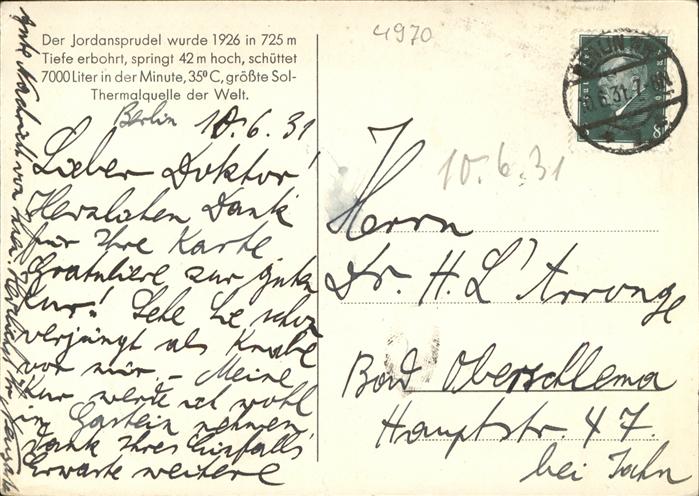 Der Jordansprudel wurde 1926 in 725 m
Tiefe erbohrt, springt 42 m hoch, schüttet
7000 Liter in der Minute, 35⁰ C, größte Sol-
Thermalquelle der Welt.
Berlin 10.6.31
Lieber Doktor!
Herzlichen Dank
für Ihre Karte
Gratuliere zur guten
Kur! Sehe Sie schon
verjüngt als Knabe
vor mir. – Meine
Kur werde ich wohl
in Gastein nehmen
dank Ihres Einfalls!
Erwarte weitere
gute Nachricht von
4970
BERLIN
10.6.31.7-8N
8
10.6.31
Herrn
Dr. H. L'Arronge
Bad Oberschlema
Hauptstr. 47.
bei Jahn